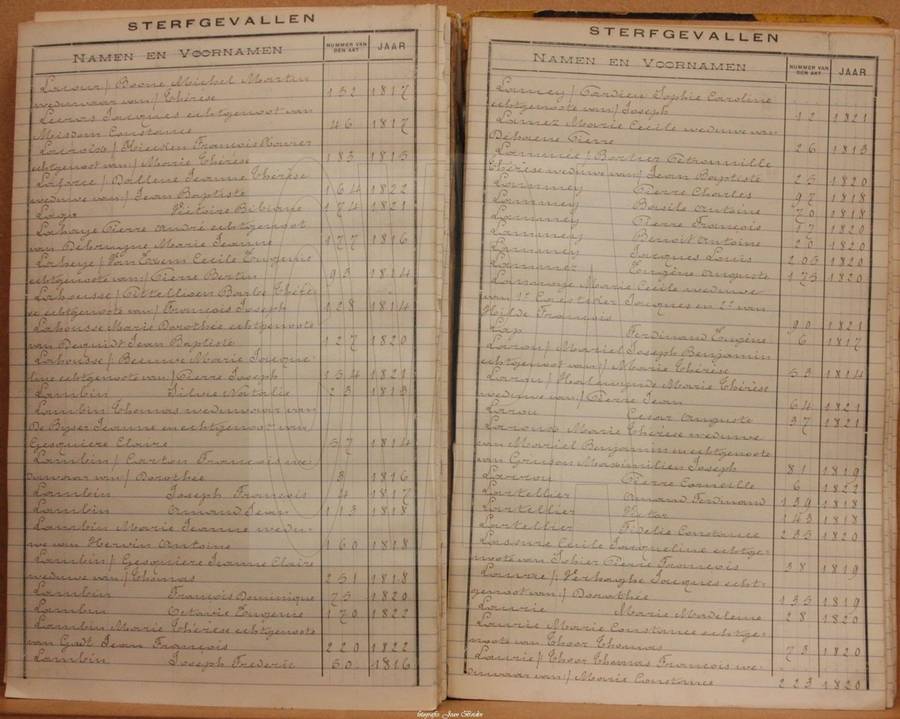 STERFGEVALLEN
NAMEN EN VOORNAMEN NUMMER VAN DEN AKT JAAR
Latour / Boone Michel Martin
weduwaar van / Thérèse 152 1817
Jacques echtgenoot van
Meesdom Constance 46 1817
François Xavier
echtgenoot van / Marie Thérèse 183 1815
Laforce / Dallene Jeanne Thérèse
weduwe van / Jean Baptiste 164 1822
Lage Victoire Bibiane 174 1821
Lahaye Pierre André echtgenoot
van Debruyne Marie Jeanne 177 1816
Laheye / Van Cecile Eugenie
echtgenoote van / Pierre Bertin 93 1814
Lahousse / Pittellioen Barbe Thérè-
se echtgenoote van / François Joseph 128 1814
Lahousse Marie Dorothée echtgenoote
van Dequidt Jean Baptiste 127 1820
Lahousse / Beeuwe Marie Jacque-
line echtgenoote van / Pierre Joseph 154 1821
Lambin Silvie Natalie 23 1813
Lambin Thomas weduwaar van
De Byser Jeanne en echtgenoot van
Gesquiere Claire 57 1814
Lambin / Carton François we-
duwaar van / Dorothée 3 1816
Lambin Joseph François 4 1817
Lambin Armand Jean 113 1818
Lambin Marie Jeanne wedu-
we van Hervin Antoine 160 1818
Lambin / Gesquiere Jeanne Claire
weduwe van / Thomas 251 1818
Lambin François Dominique 75 1820
Lambin Octavie Eugenie 170 1822
Lambin Marie Thérèse echtgenoote
van Jean François 220 1822
Lambin Joseph Frederic 50 1816
STERFGEVALLEN
NAMEN EN VOORNAMEN NUMMER VAN DEN AKT JAAR
Lamey / Tardieu Sophie Caroline
echtgenoote van / Joseph 12 1821
Lamez Marie Cecile weduwe van
Dehaene Pierre 26 1813
Lammes / Bortier Petronnille
Thérèse weduwe van / Jean Baptiste 25 1820
Lammey Pierre Charles 97 1818
Lammey Basile Antoine 70 1818
Lammey Pierre François 17 1820
Lammey Benoit Antoine 20 1820
Lammey Jacques Louis 205 1820
Lammez Eugène Auguste 175 1820
Marie Cecile weduwe
van 1° Jacques en 2° van
François 90 1821
Lap Ferdinand Eugène 6 1817
Larou / Mariel Joseph Benjamin
echtgenoot van / Marie Thérèse 53 1814
Larou / Marie Thérèse
weduwe van / Pierre Jean 64 1821
Larou Cesar Auguste 37 1821
Laroux Marie Thérèse weduwe
van Mariel Benjamin en echtgenoote
van Gruson Maximilien Joseph 81 1819
Pierre Corneille 6 1822
Lartellier Armand Ferdinand 139 1818
Lartellier Victor 143 1818
Lartellier Fidelie Constance 235 1820
Lassure Cecile Jacqueline echtge-
noote van Pierre François 38 1819
/ Verhaeghe Jacques echt-
genoot van / Dorothée 135 1819
Laurie Marie Madeleine 28 1820
Laurie Marie Constance echtge-
noote van Thoor Thomas 73 1820
Laurie / Thoor Thomas François we-
duwaar van / Marie Constance 223 1820
fotografie Jean Boidin